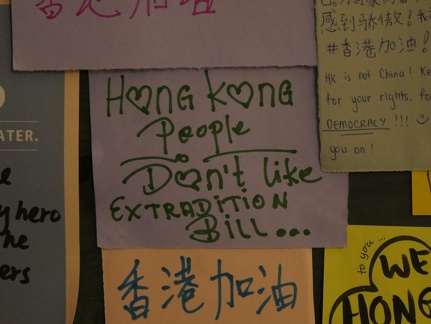 香港加油
感到骄傲!
#香港加油!
HK is not China!
for your rights, fo
DEMOCRACY !!! ☺
you on!
ATER.
HONG KONG
People
Don't like
EXTRADITION
Bill...
hero
the
ers
香港加油
to you...
WE
HONG